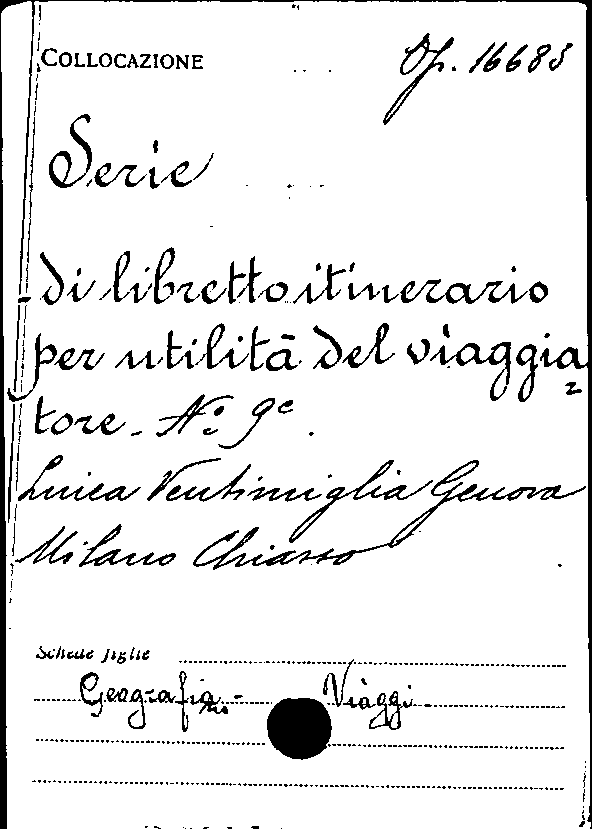 COLLOCAZIONE Op. 16685
Serie
di libretto itinerario
per utilità del viaggia
tore - No 9e.
Linea Ventimiglia Genova
Milano Chiasso
Schede figlie
Geografia - Viaggi